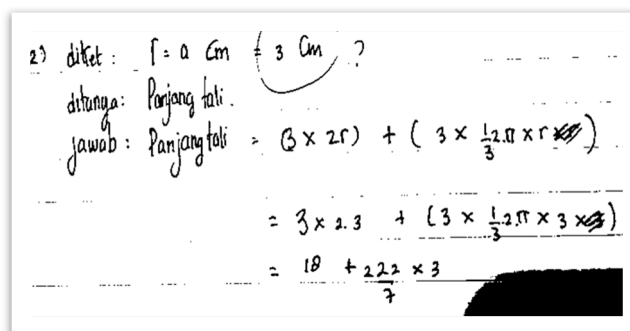 2) diket : r = a Cm = 3 Cm ?
ditanya : Panjang tali .
jawab : Panjang tali = (3 x 2r) + ( 3 x 1/3 2.π x r )
= 3 x 2.3 + (3 x 1/3 .2.π x 3 )
= 18 + 222/7 x 3